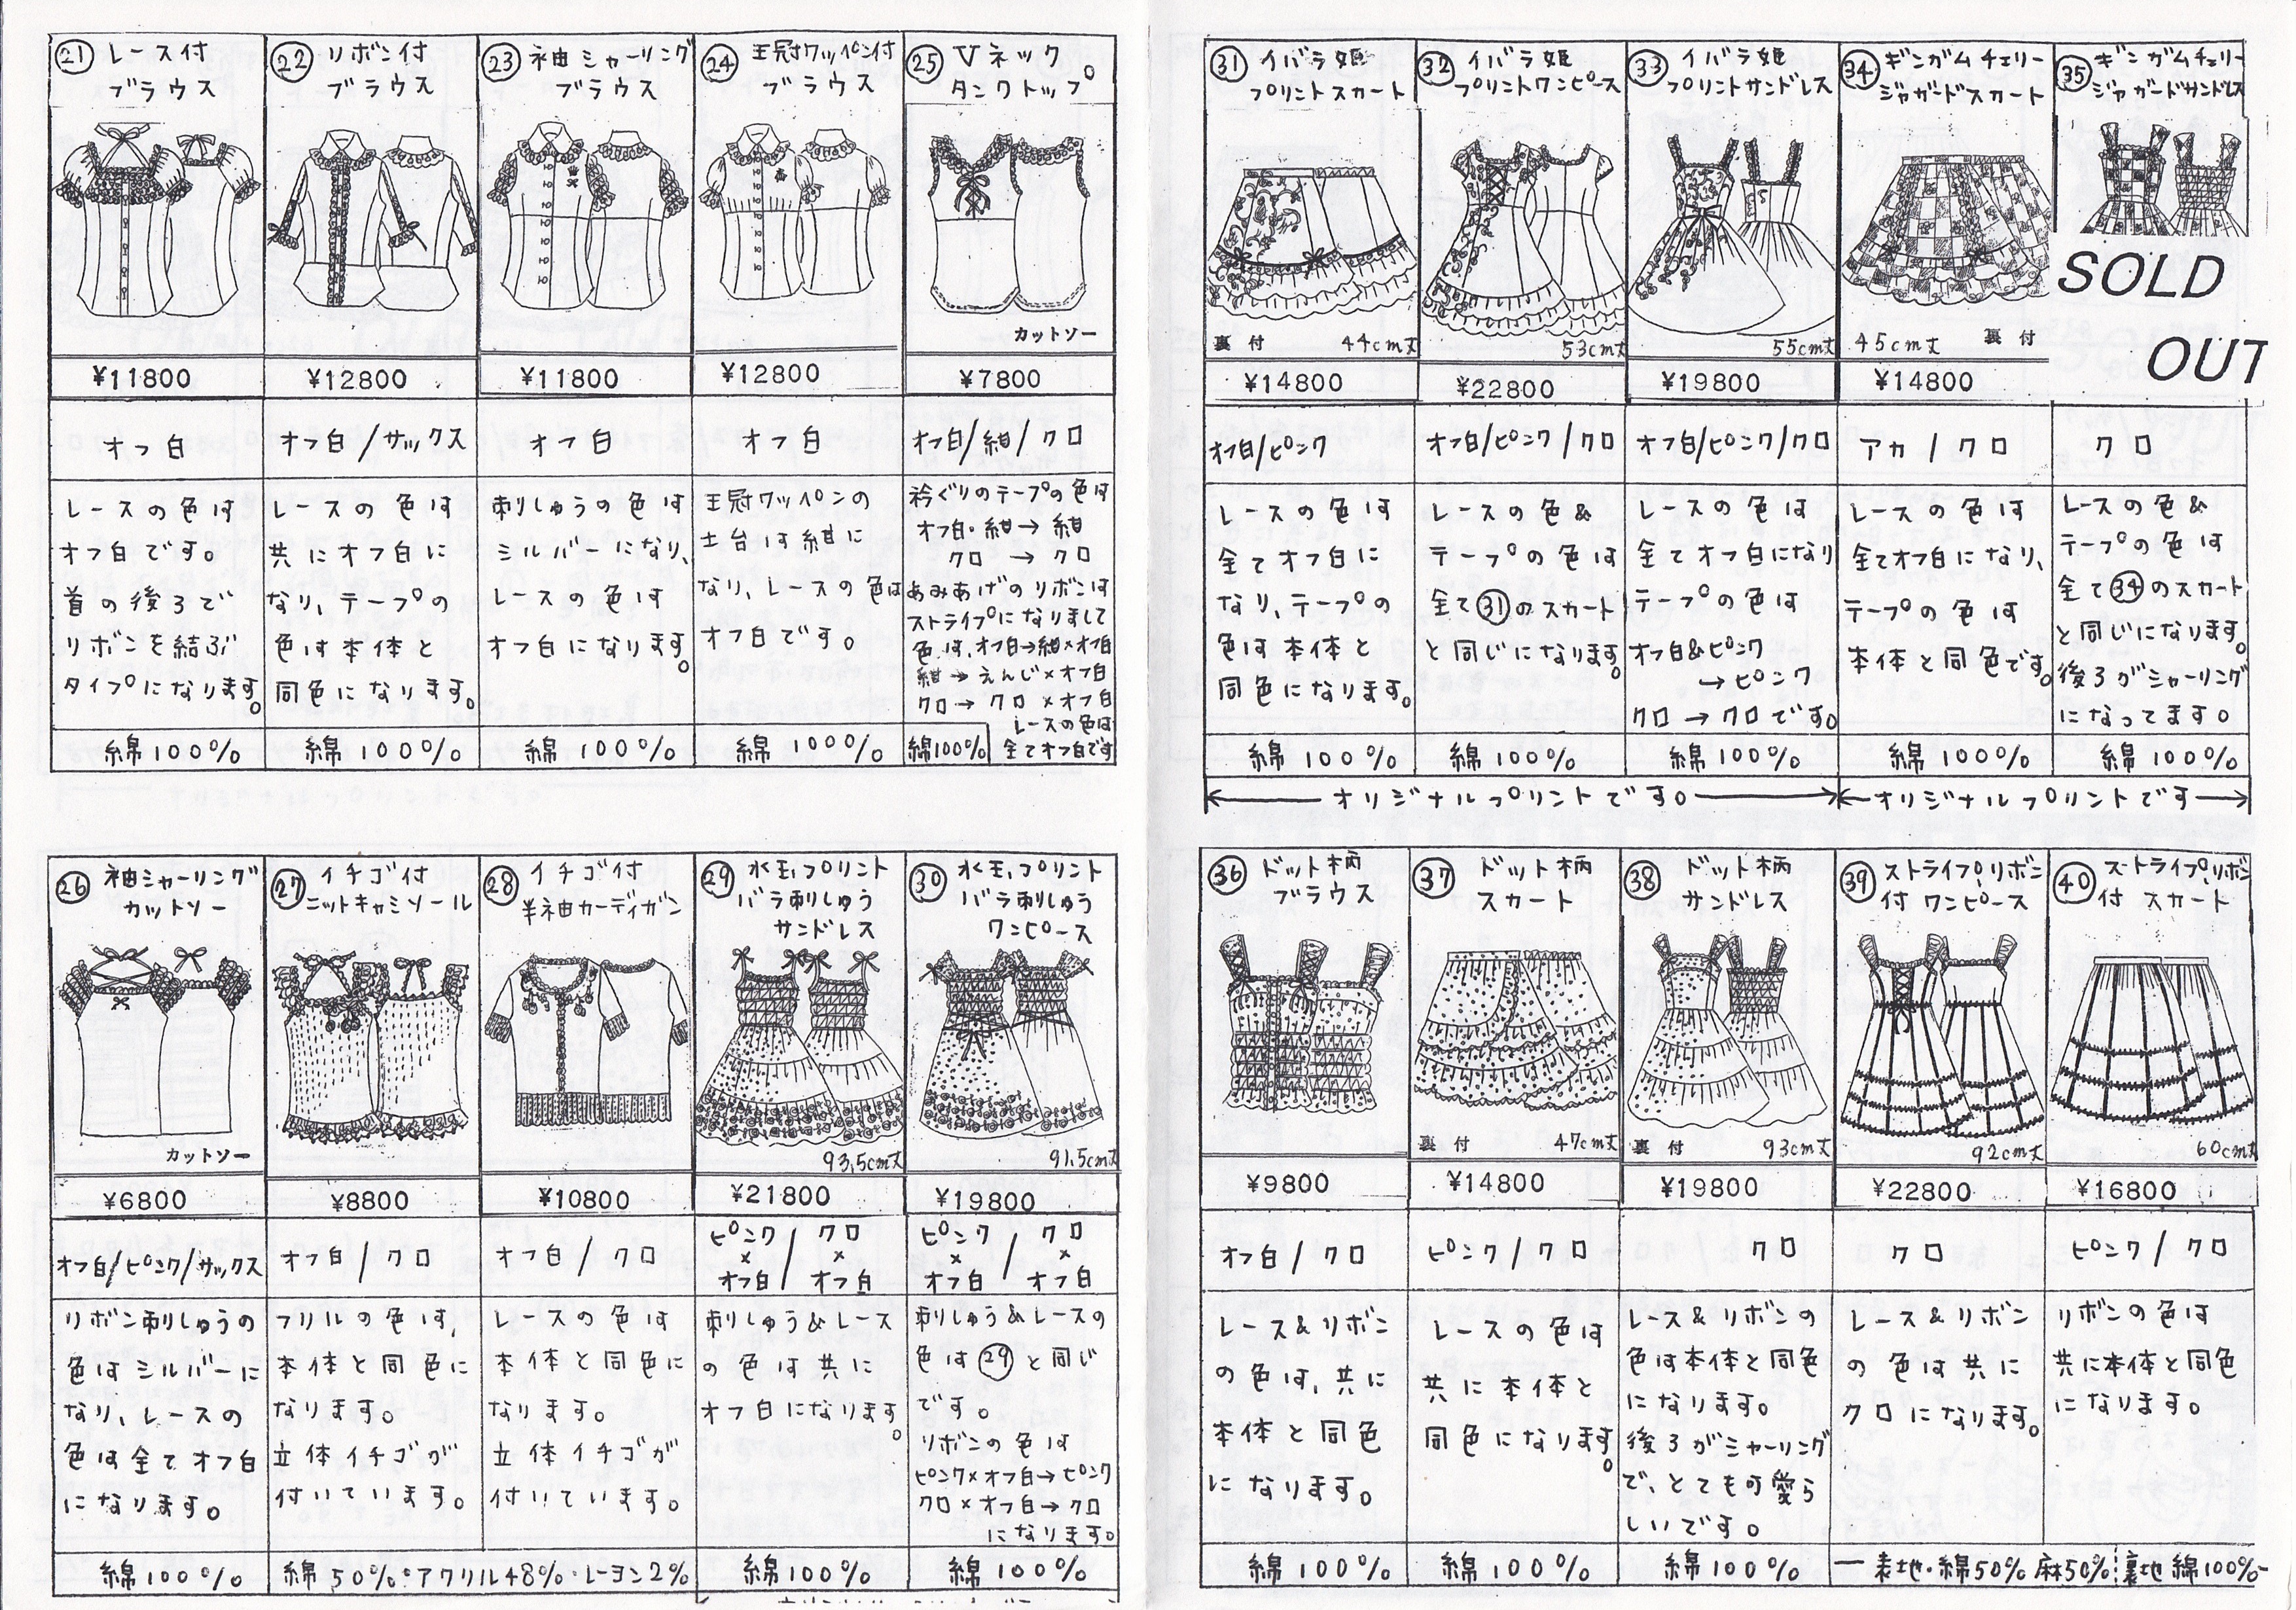 21 レース付
ブラウス
¥11800
オフ白
レースの色は
オフ白です。
首の後ろで
リボンを結ぶ
タイプになります。
綿100%
22 リボン付
ブラウス
¥12800
オフ白/サックス
レースの色は
共にオフ白に
なり、テープの
色は本体と
同色になります。
綿100%
23 袖シャーリング
ブラウス
¥11800
オフ白
刺しゅうの色は
シルバーになり、
レースの色は
オフ白になります。
綿100%
24 王冠ワッペン付
ブラウス
¥12800
オフ白
王冠ワッペンの
土台は紺に
なり、レースの色は
オフ白です。
綿100%
25 Vネック
タンクトップ
カットソー
¥7800
オフ白/紺/クロ
衿ぐりのテープの色は
オフ白・紺→紺
クロ→クロ
あみあげのリボンは
ストライプになりまして
色は、オフ白→紺×オフ白
紺→えんじ×オフ白
クロ→クロ×オフ白
レースの色は
全てオフ白です
綿100%
26 袖シャーリング
カットソー
カットソー
¥6800
オフ白/ピンク/サックス
リボン刺しゅうの
色はシルバーに
なり、レースの
色は全てオフ白
になります。
綿100%
27 イチゴ付
ニットキャミソール
¥8800
オフ白/クロ
フリルの色は、
本体と同色に
なります。
立体イチゴが
付いています。
28 イチゴ付
半袖カーディガン
¥10800
オフ白/クロ
レースの色は
本体と同色に
なります。
立体イチゴが
付いています。
綿50%・アクリル48%・レーヨン2%
29 水玉プリント
バラ刺しゅう
サンドレス
93,5cm丈
¥21800
ピンク×オフ白/クロ×オフ白
刺しゅう&レース
の色は共に
オフ白になります。
綿100%
30 水玉プリント
バラ刺しゅう
ワンピース
91,5cm丈
¥19800
ピンク×オフ白/クロ×オフ白
刺しゅう&レースの
色は29と同じ
です。
リボンの色は
ピンク×オフ白→ピンク
クロ×オフ白→クロ
になります。
綿100%
31 イバラ姫
プリントスカート
裏付 44cm丈
¥14800
オフ白/ピンク
レースの色は
全てオフ白に
なり、テープの
色は本体と
同色になります。
綿100%
32 イバラ姫
プリントワンピース
53cm丈
¥22800
オフ白/ピンク/クロ
レースの色&
テープの色は
全て31のスカート
と同じになります。
綿100%
33 イバラ姫
プリントサンドレス
55cm丈
¥19800
オフ白/ピンク/クロ
レースの色は
全てオフ白になり
テープの色は
オフ白&ピンク
→ピンク
クロ→クロです。
綿100%
オリジナルプリントです。
34 ギンガムチェリー
ジャガードスカート
45cm丈 裏付
¥14800
アカ/クロ
レースの色は
全てオフ白になり、
テープの色は
本体と同色です。
綿100%
35 ギンガムチェリー
ジャガードサンドレス
SOLD
OUT
クロ
レースの色&
テープの色は
全て34のスカート
と同じになります。
後ろがシャーリング
になってます。
綿100%
オリジナルプリントです
36 ドット柄
ブラウス
¥9800
オフ白/クロ
レース&リボン
の色は、共に
本体と同色
になります。
綿100%
37 ドット柄
スカート
裏付 47cm丈
¥14800
ピンク/クロ
レースの色は
共に本体と
同色になります。
綿100%
38 ドット柄
サンドレス
裏付 93cm丈
¥19800
クロ
レース&リボンの
色は本体と同色
になります。
後ろがシャーリング
で、とても可愛ら
しいです。
綿100%
39 ストライプリボン
付ワンピース
92cm丈
¥22800
クロ
レース&リボン
の色は共に
クロになります。
40 ストライプリボン
付スカート
60cm丈
¥16800
ピンク/クロ
リボンの色は
共に本体と同色
になります。
表地・綿50%麻50% 裏地綿100%